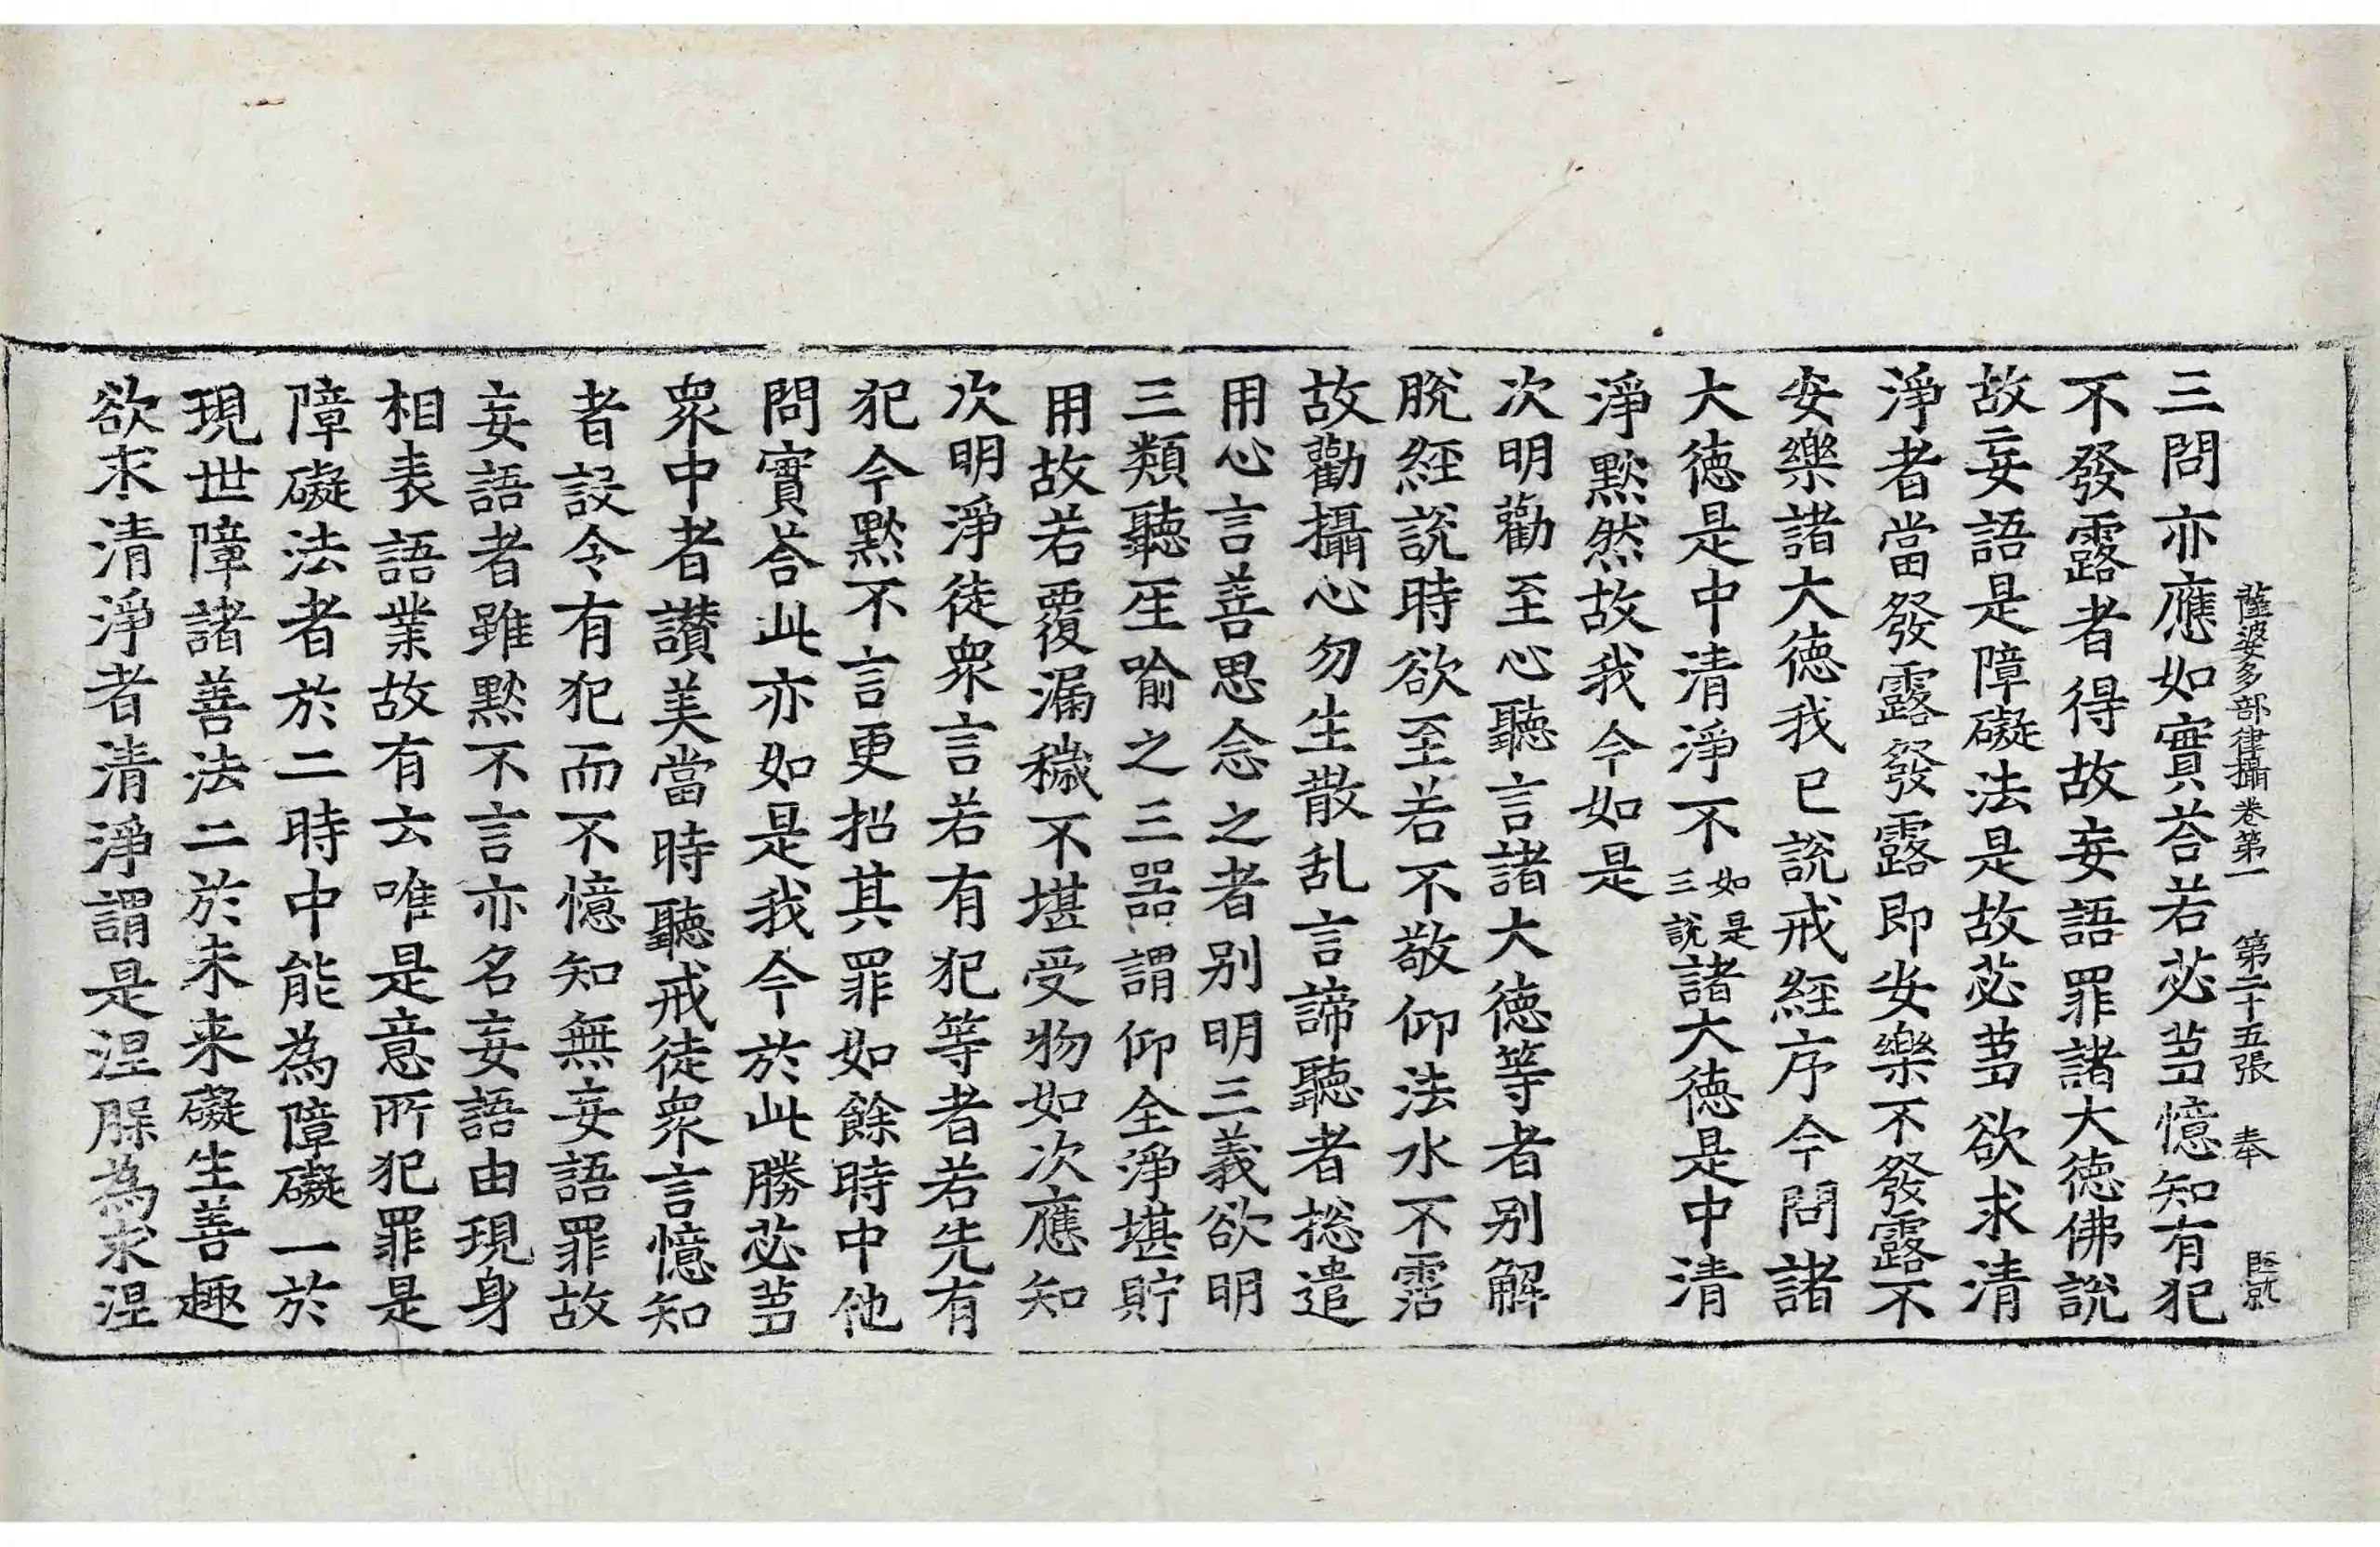 薩婆多部律攝卷第一　第二十五張　奉
三問亦應如實荅若苾蒭憶知有犯
不發露者得故妄語罪諸大德佛說
故妄語是障礙法是故苾蒭欲求清
淨者當發露發露即安樂不發露不
安樂諸大德我已說戒經序今問諸
大德是中清淨不如是三說諸大德是中清
淨默然故我今如是
次明勸至心聽言諸大德等者別解
脫經說時欲至若不敬仰法水不霑
故勸攝心勿生散乱言諦聽者揔遣
用心言善思念之者別明三義欲明
三類聽生喻之三器謂仰全淨堪貯
用故若覆漏穢不堪受物如次應知
次明淨徒衆言若有犯等者若先有
犯今默不言更招其罪如餘時中他
問實荅此亦如是我今於此勝苾蒭
衆中者讃美當時聽戒徒衆言憶知
者設令有犯而不憶知無妄語罪故
妄語者雖默不言亦名妄語由現身
相表語業故有云唯是意所犯罪是
障礙法者於二時中能為障礙一於
現世障諸善法二於未来礙生善趣
欲求清淨者清淨謂是涅槃為求涅